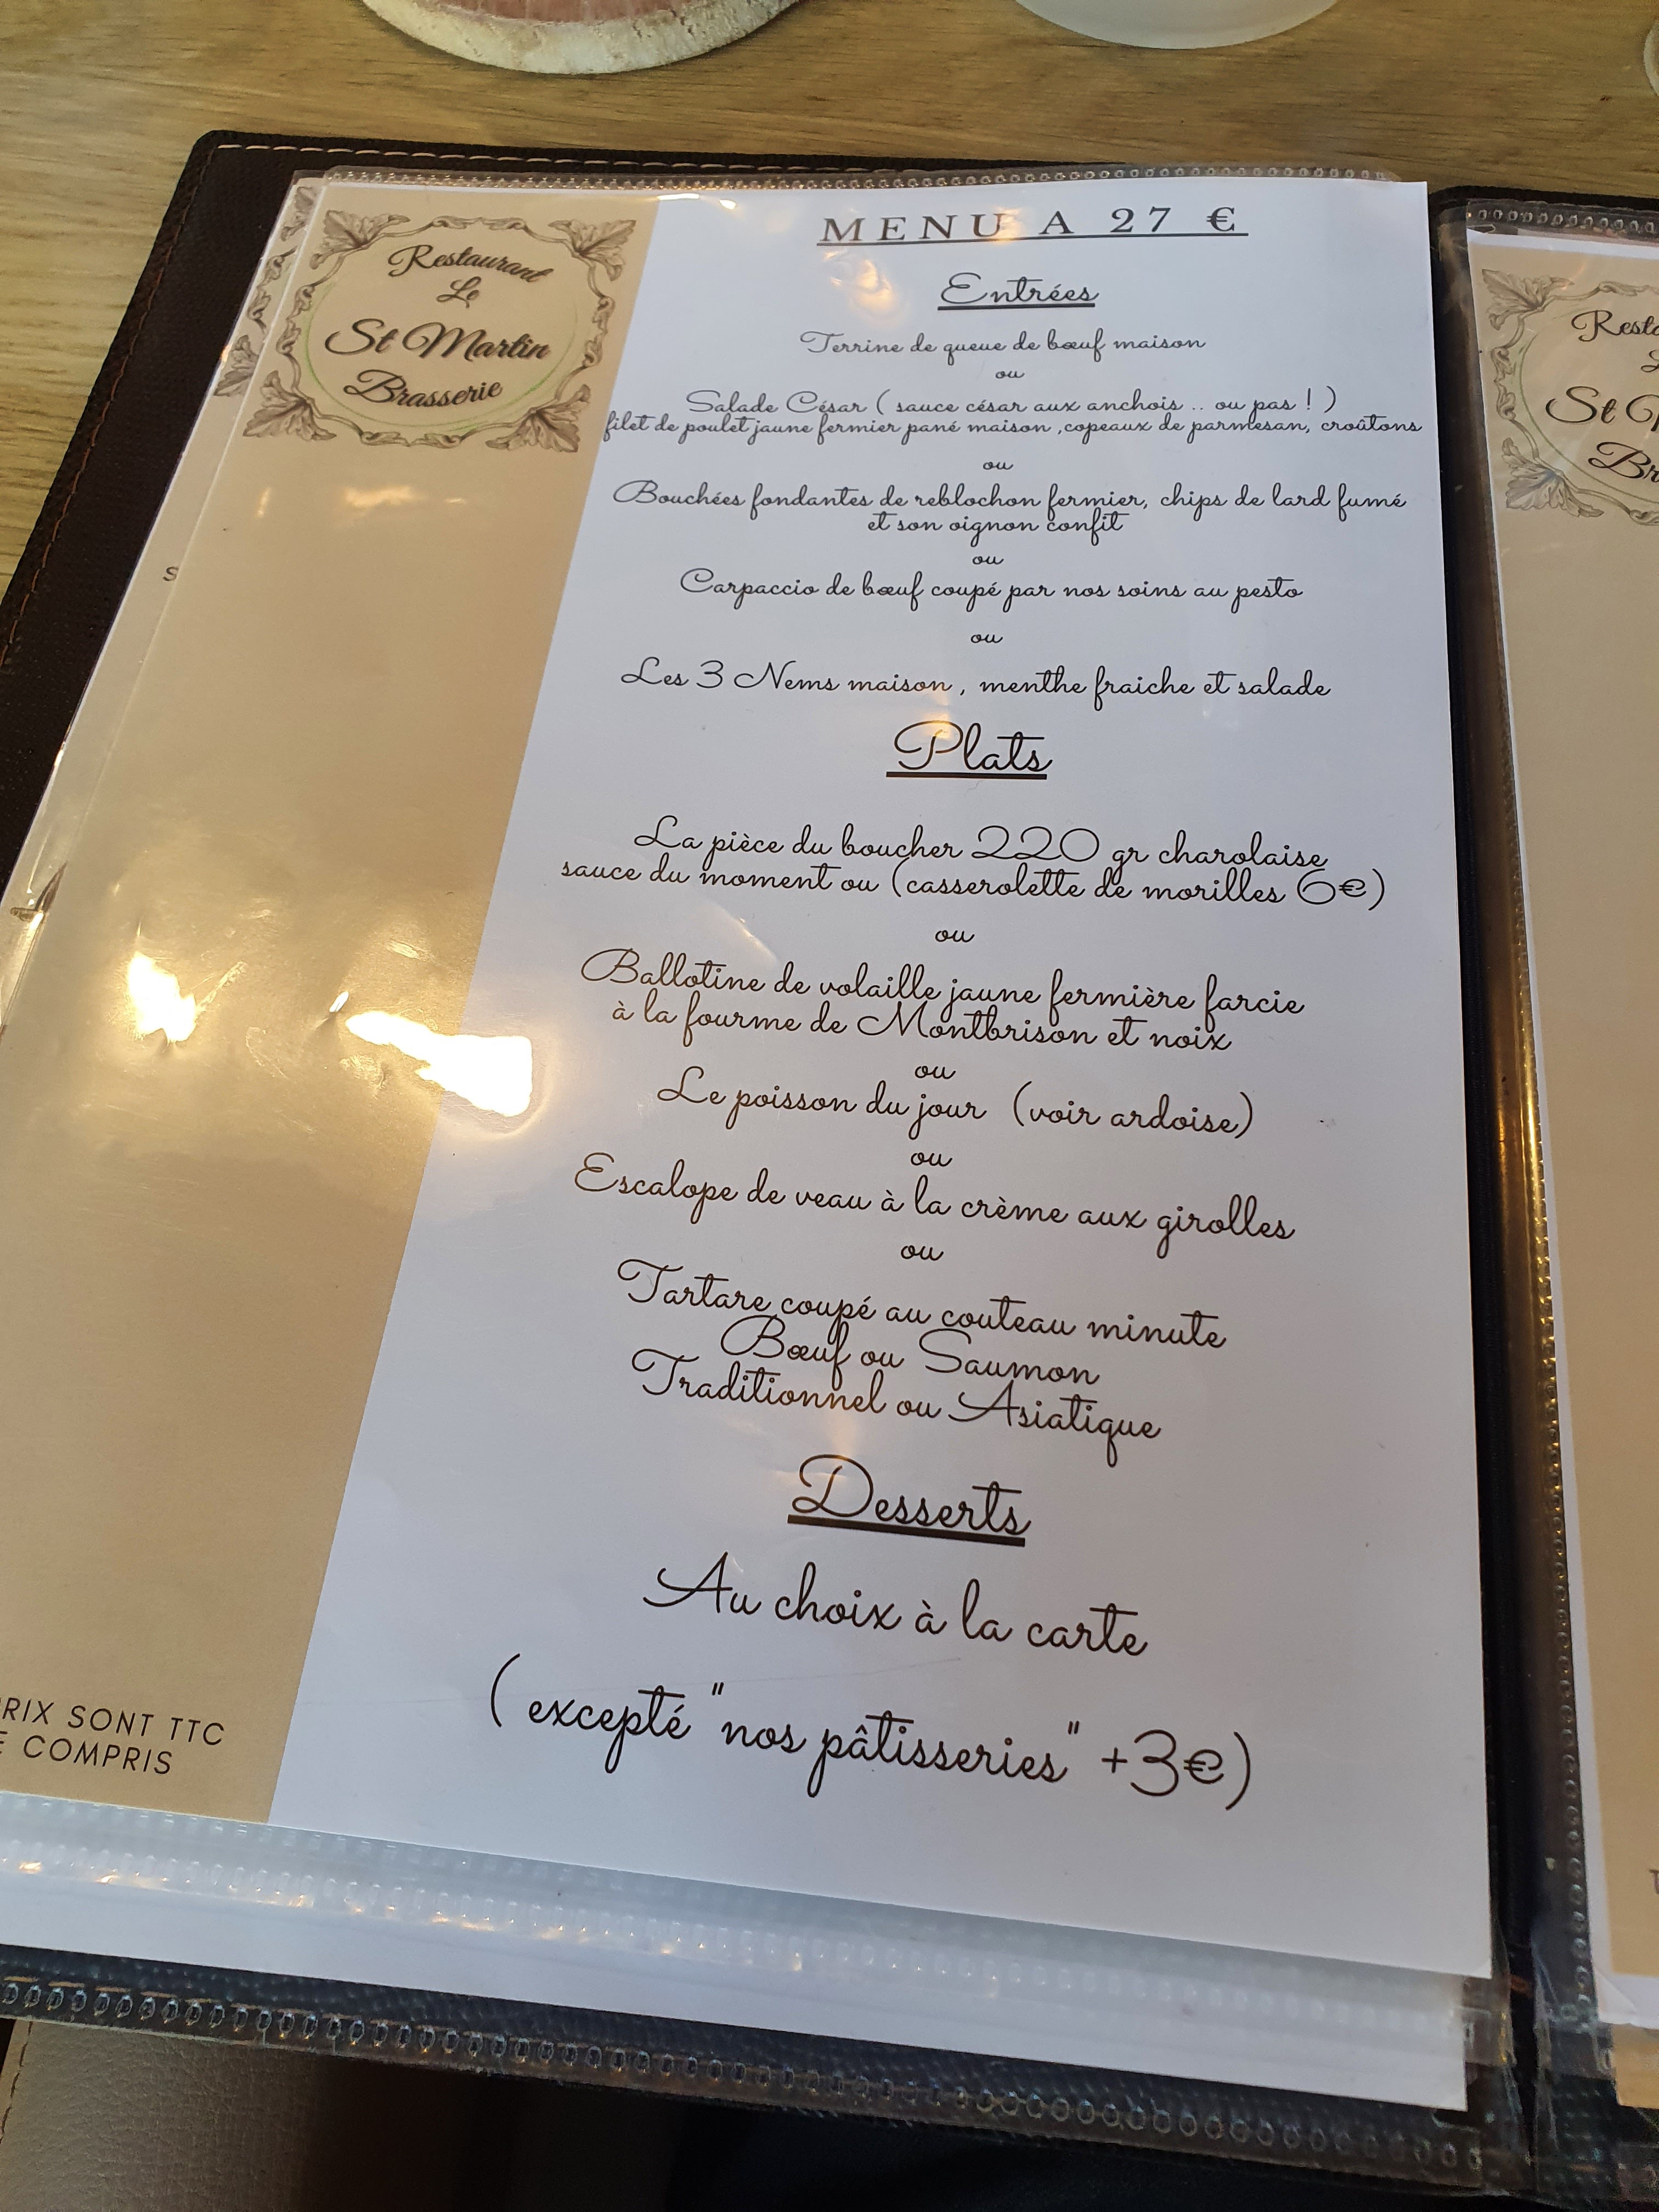 Restaurant
Le
St Martin
Brasserie
MENU A 27 €
Entrées
Terrine de queue de bœuf maison
ou
Salade César ( sauce césar aux anchois .. ou pas ! )
filet de poulet jaune fermier pané maison ,copeaux de parmesan, croûtons
ou
Bouchées fondantes de reblochon fermier, chips de lard fumé
et son oignon confit
ou
Carpaccio de bœuf coupé par nos soins au pesto
ou
Les 3 Nems maison , menthe fraiche et salade
Plats
La pièce du boucher 220 gr charolaise
sauce du moment ou (casserolette de morilles 6€)
ou
Ballotine de volaille jaune fermière farcie
à la fourme de Montbrison et noix
ou
Le poisson du jour (voir ardoise)
ou
Escalope de veau à la crème aux girolles
ou
Tartare coupé au couteau minute
Bœuf ou Saumon
Traditionnel ou Asiatique
Desserts
Au choix à la carte
( excepté "nos pâtisseries" +3€)
RIX SONT TTC
COMPRIS
St